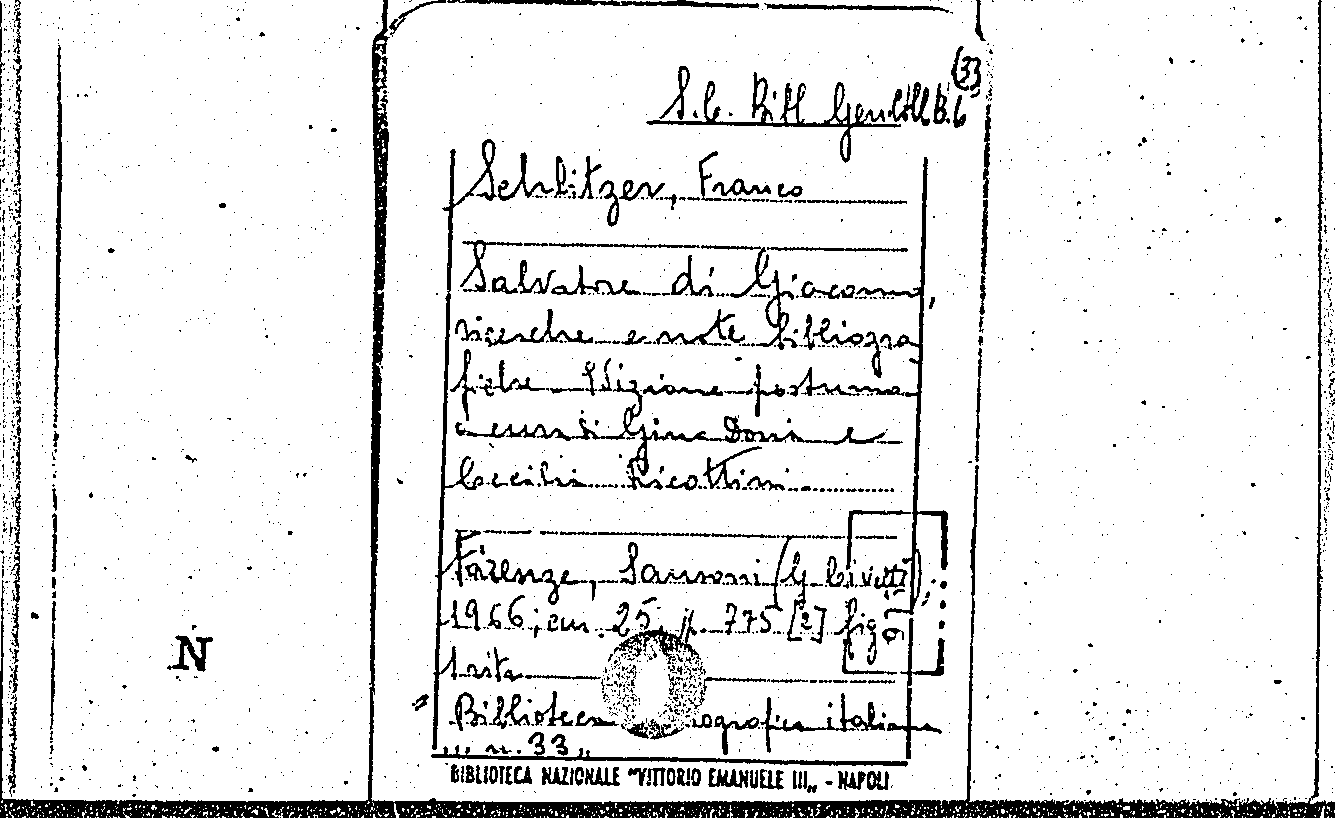 (33
S.C. Bibl Gen. B.6
Schlitzer, Franco
Salvatore di Giacomo,
ricerche e note bibliogra
fiche. Edizione postuma
a cura di Gino Doria e
Cecilia Ricottini.
Firenze, Sansoni (G. Civelli),
1966; cm. 25, p. 775 [2] fig
1 rit.
Biblioteca ografica italiana
n. 33"
N
BIBLIOTECA NAZIONALE "VITTORIO EMANUELE III„ - NAPOLI